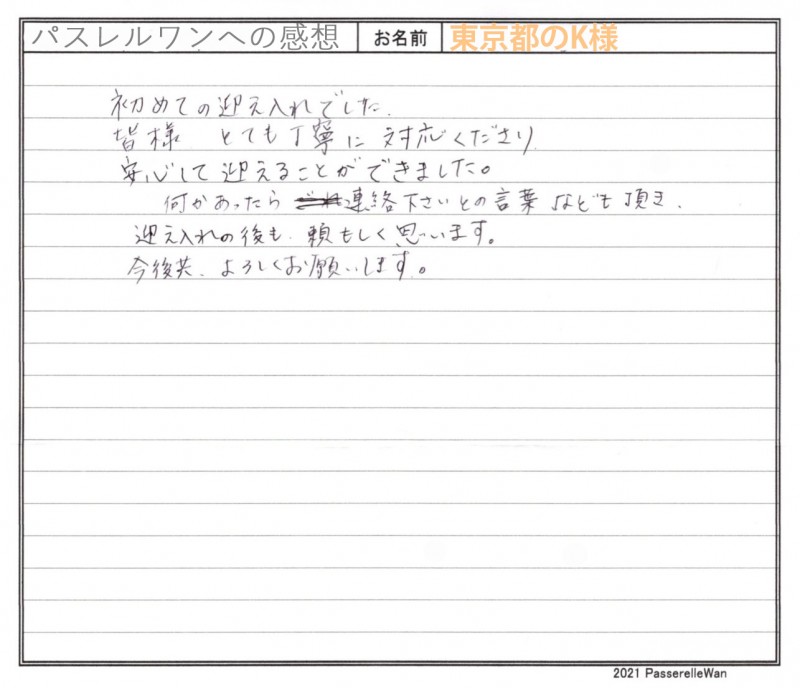 パスレルワンへの感想 お名前 東京都のK様
初めての迎え入れでした.
皆様 とても丁寧に 対応くださり
安心して迎えることができました。
何かあったら 連絡下さいとの言葉なども頂き.
迎え入れの後も.頼もしく思います。
今後共、よろしくお願いします。
2021 PasserelleWan